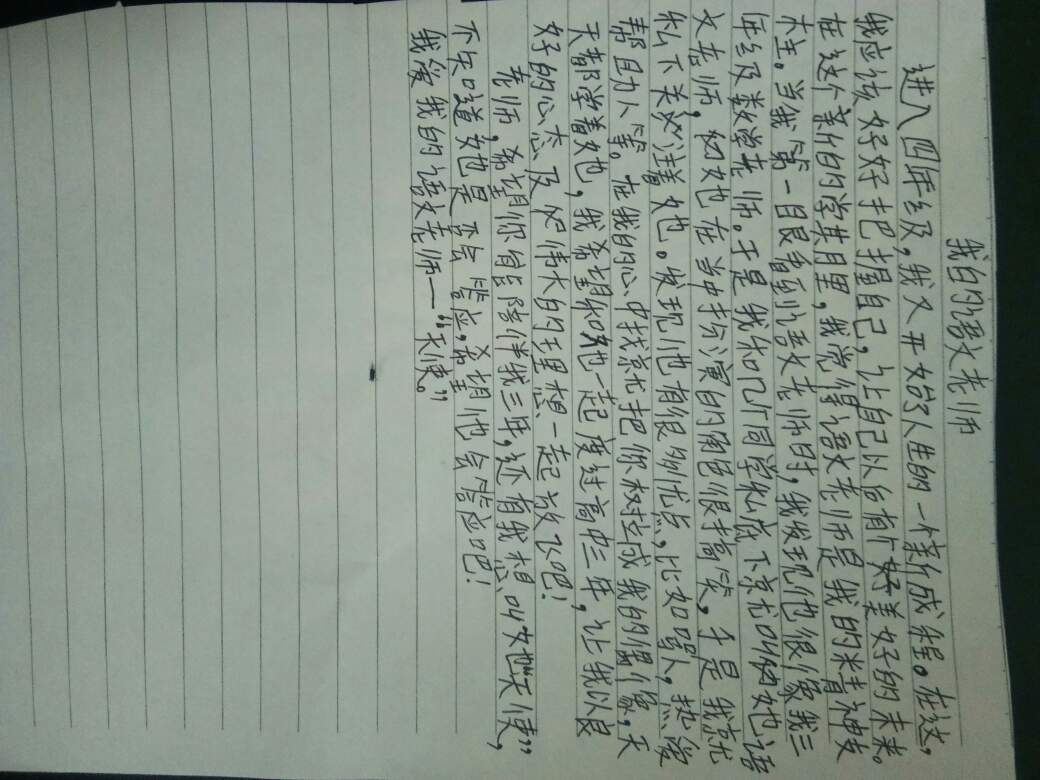 我的语文老师
进入四年级，我又开始了人生的一个新成程。在这，
我应该好好把握自己，让自己以后有个好美好的未来。
在这个新的学期里，我觉得语文老师是我的精神支
柱。当我第一眼看到语文老师时，我发现他很像我三
年级数学老师。于是我和几个同学私底下就叫她语
文老师，因她在当中扮演的角色很搞笑，于是我就
私下关注着她。发现他有很多优点，比如骂人，热爱
帮助人等。在我的心中我就把你树立成我的偶像，天
天都学着她，我希望和她一起度过高中三年，让我以良
好的心态及伟大的理想一起放飞吧！
老师，希望你能陪伴我三年，还有我想叫她“天使”，
不知道她是否会答应，希望他会答应吧！
我爱我的语文老师—“天使。”